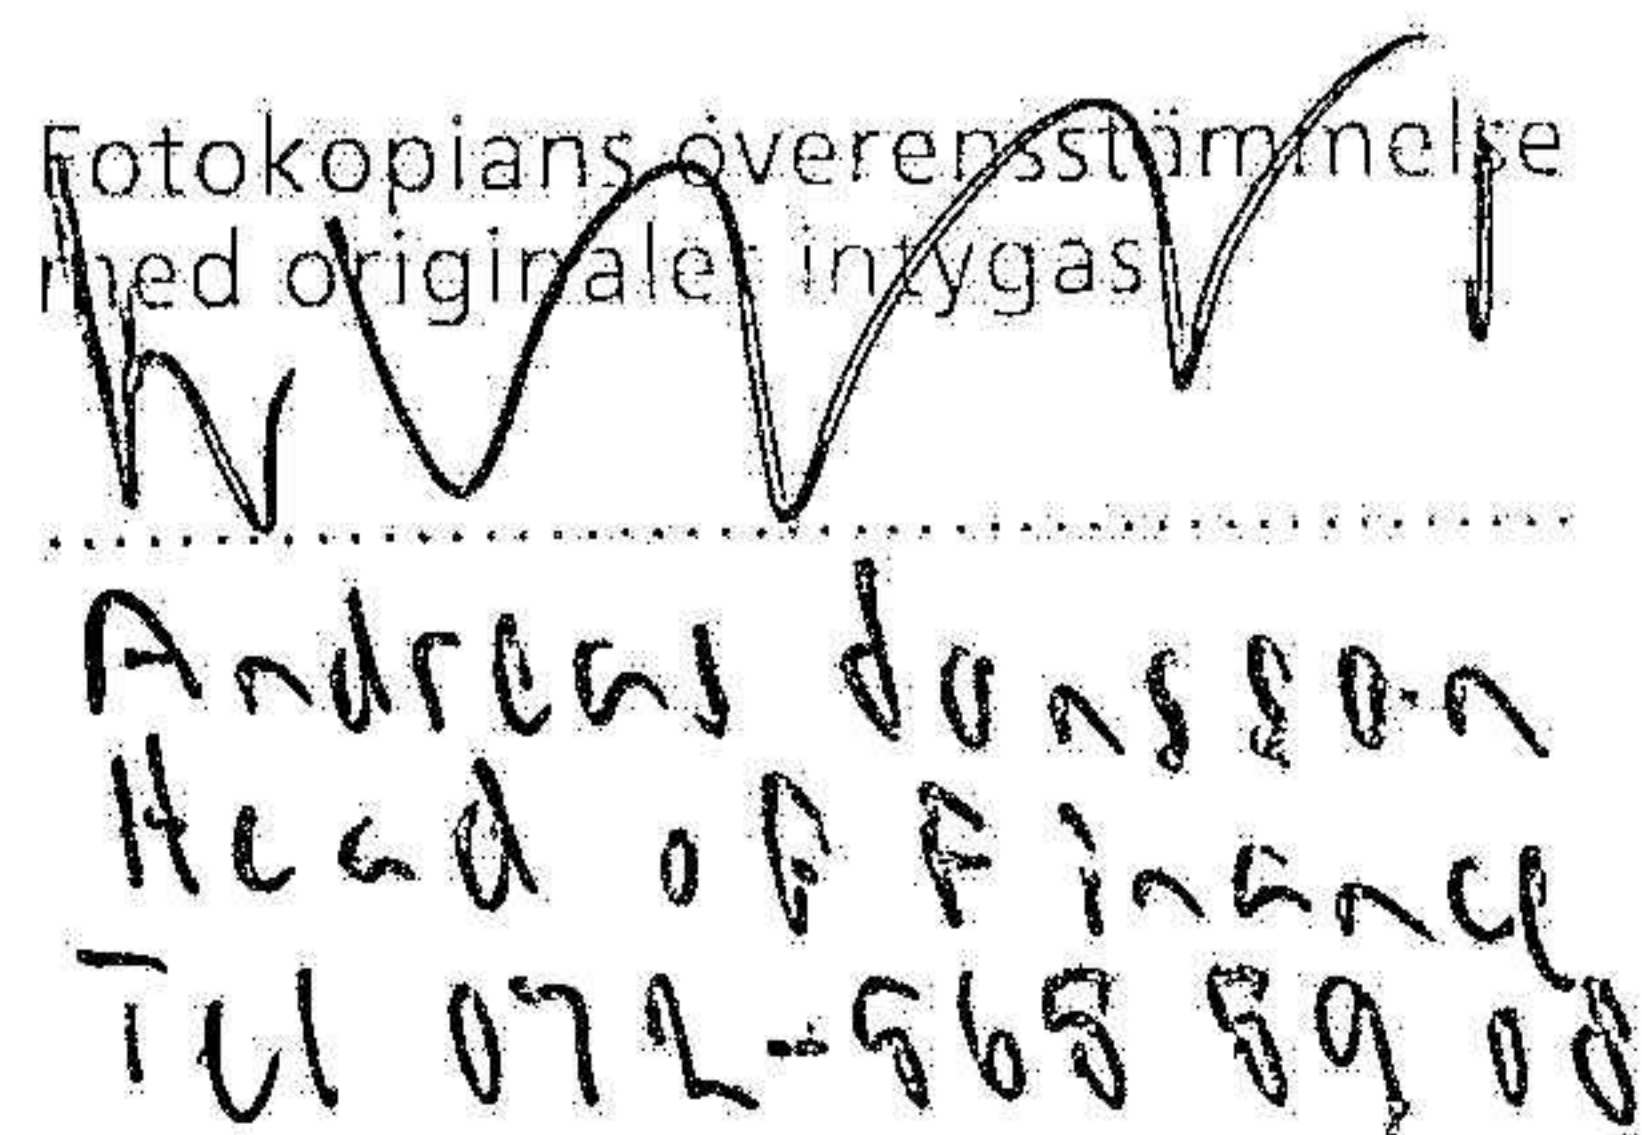 Fotokopians överensstämmelse
med originalet intygas
Andreas Jonsson
Head of Finance
Tel 072-565 59 08